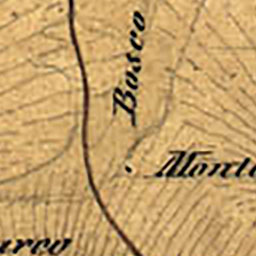 Bosco
Monte
urco